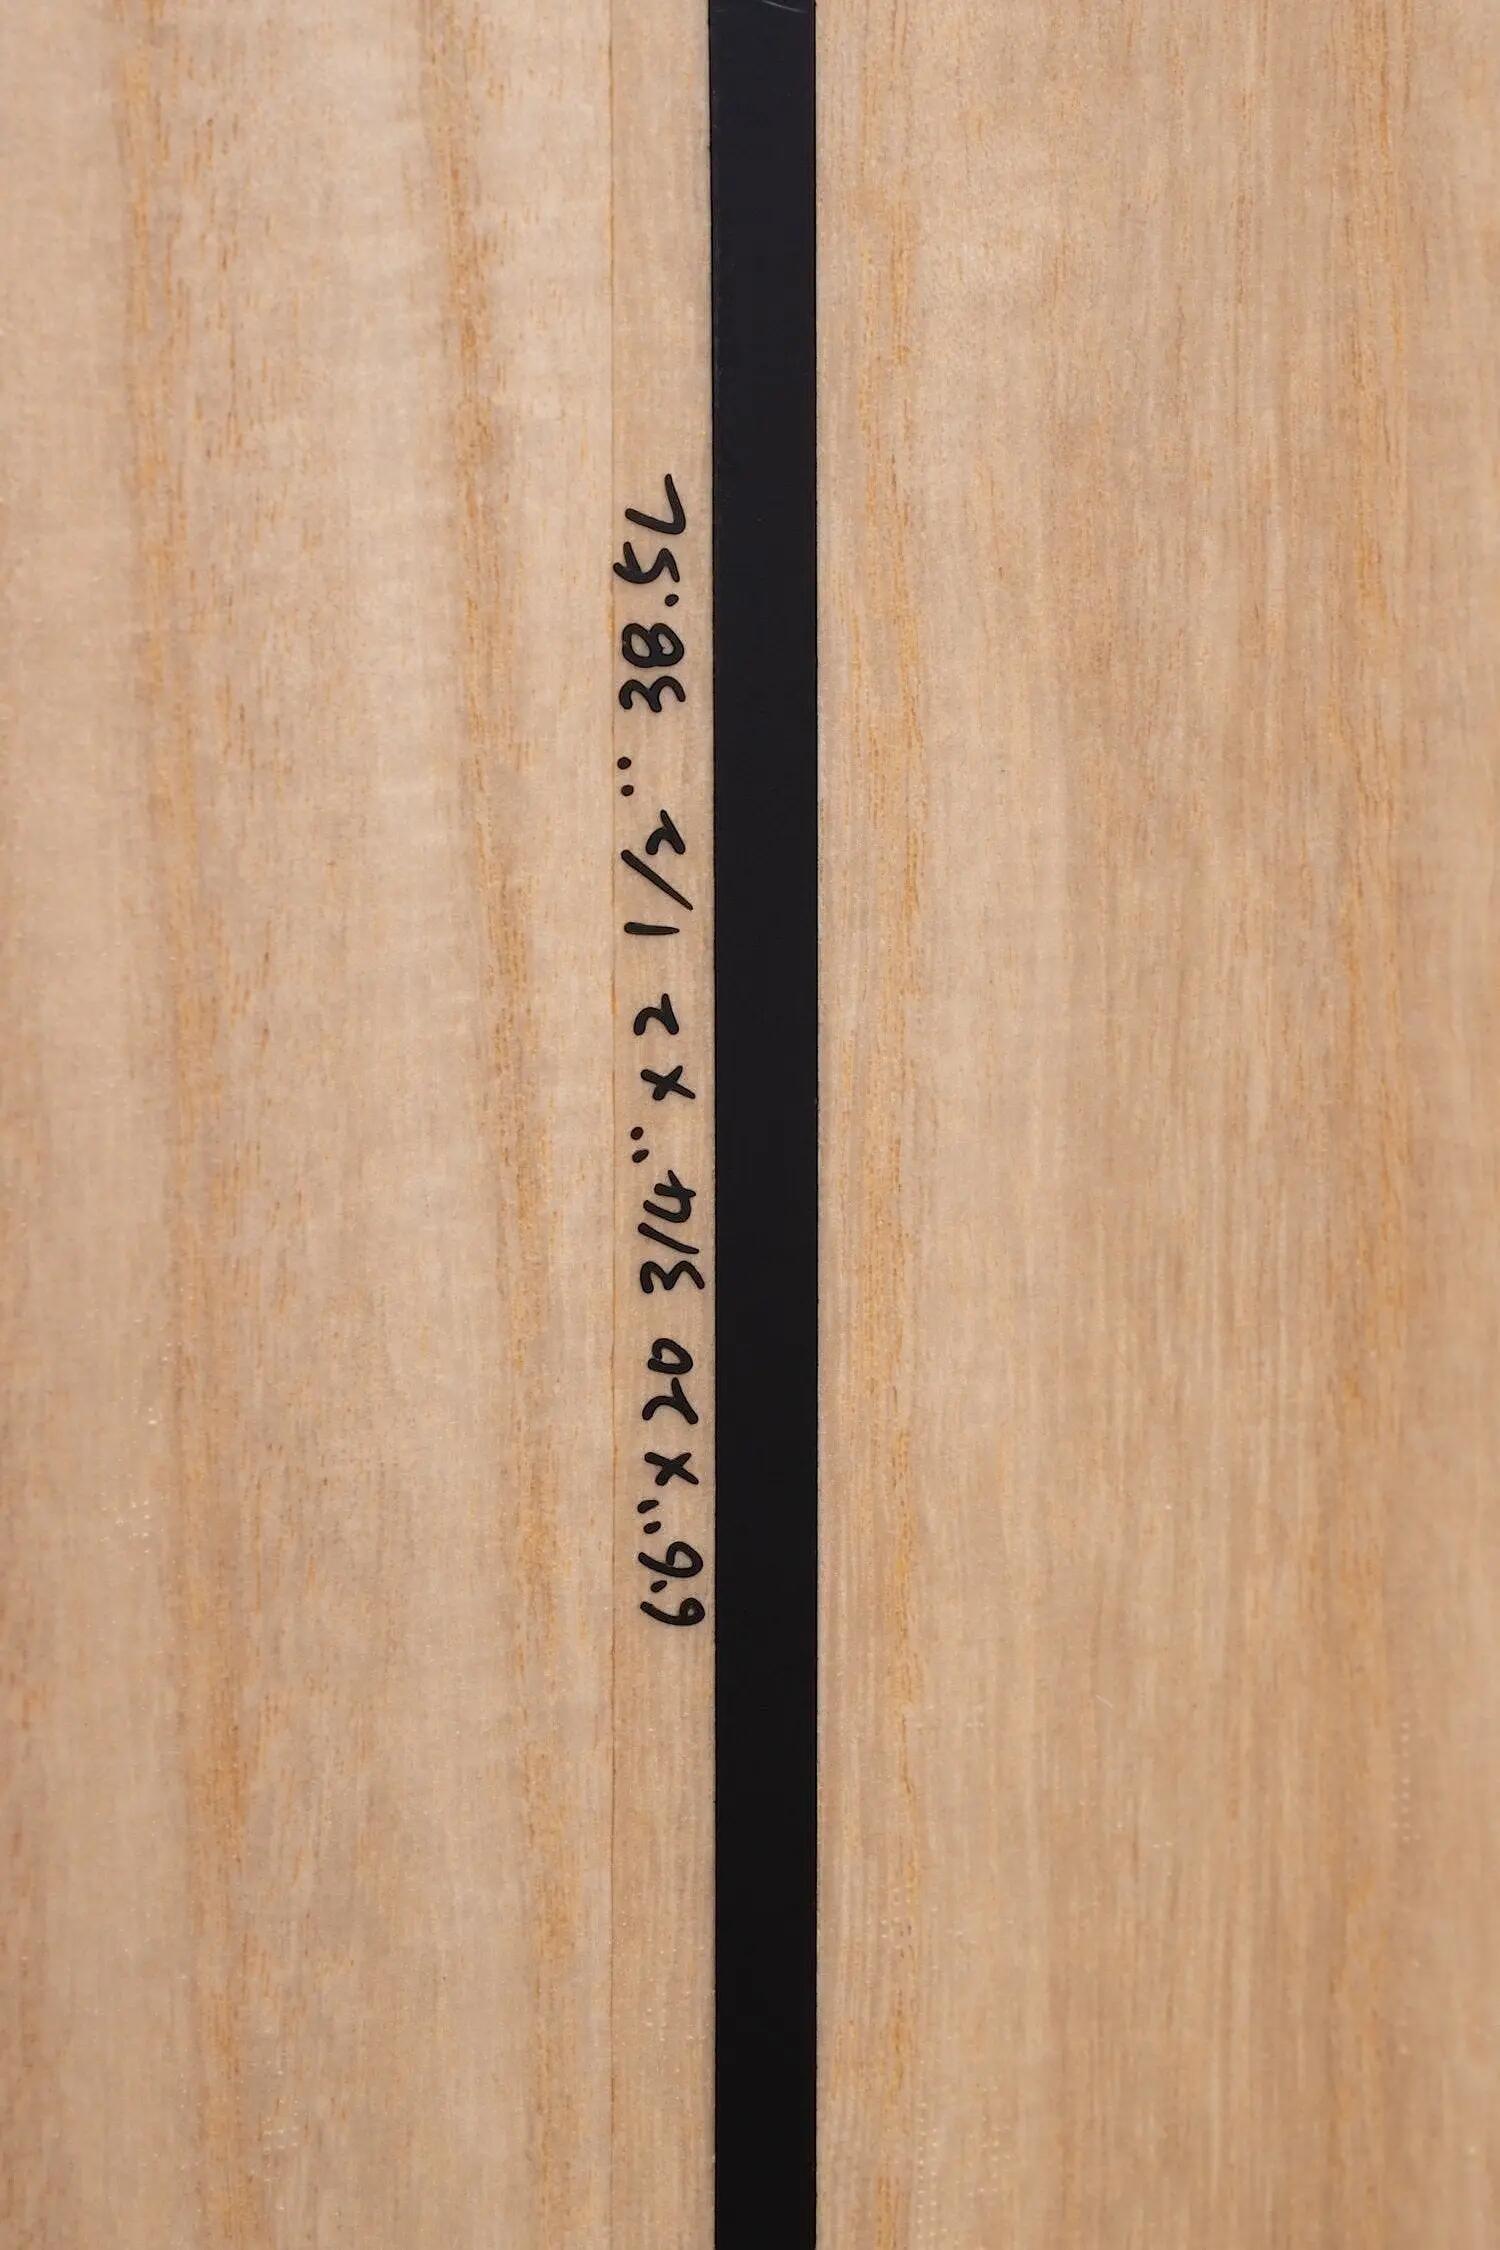 6'6" x 20 3/4" x 2 1/2" 38.5L